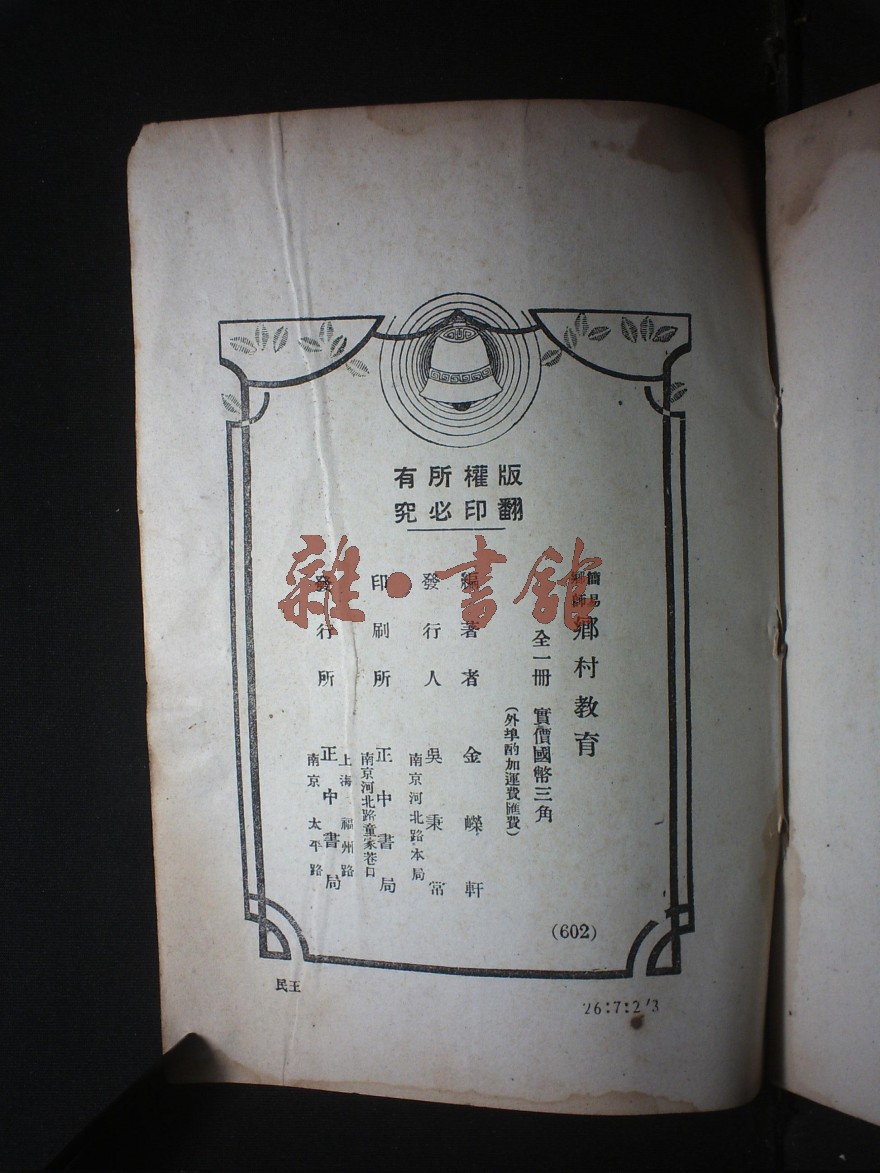 版權所有
翻印必究
簡易
鄉師
鄉村教育
全一冊 實價國幣三角
(外埠酌加運費匯費)
編著者 金嶸軒
發行人 吳秉常
南京河北路本局
印刷所 正中書局
南京河北路童家巷口
發行所 正中書局
上海 福州路
南京 太平路
(602)
王民
雜·書館